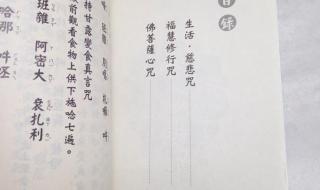 目錄
生活·慈悲咒
福慧修行咒
佛菩薩心咒
甘露變食真言咒
前觀看食物上供下施唸七遍。
班雜 阿密大 袞扎利
哈那 吽呸